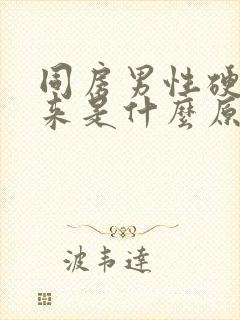 同房男性硬
来是什麼原
波韦達